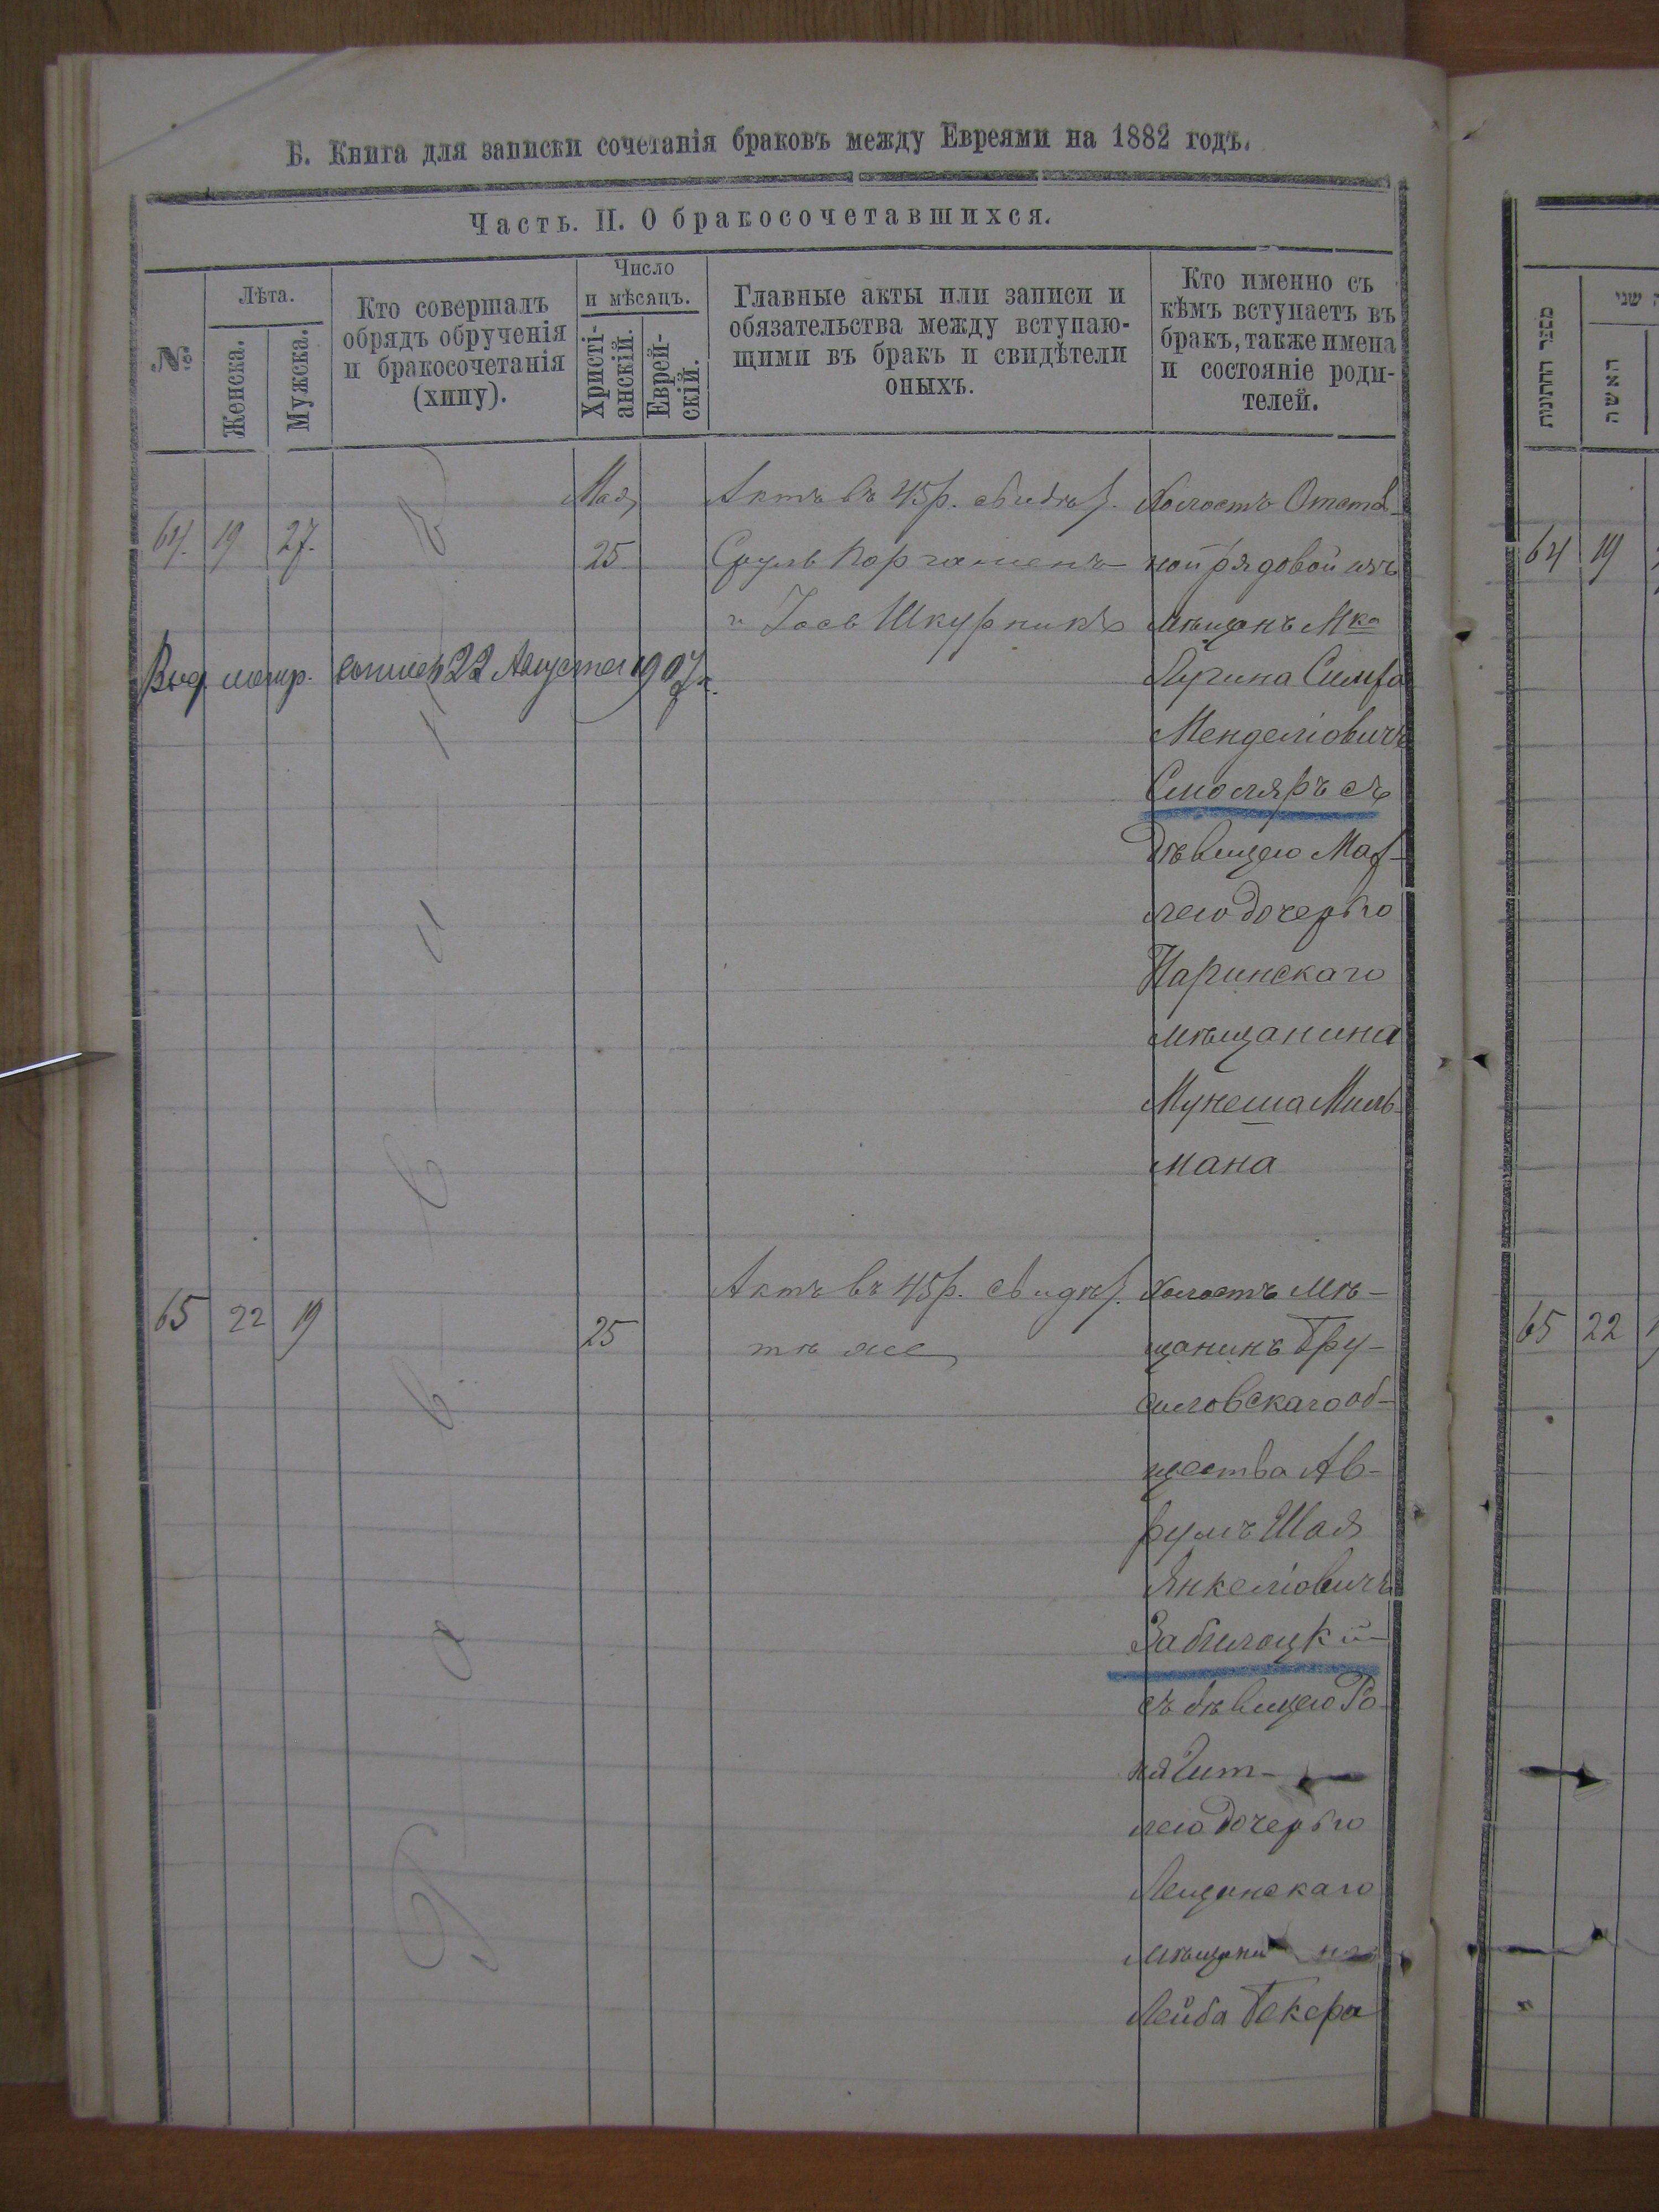 Б. Книга для записки сочетанія браковъ между Евреями на 1882 годъ.
Часть. II. О бракосочетавшихся.
№
Лѣта.
Женска.
Мужска.
Кто совершалъ
обрядъ обрученія
и бракосочетанія
(хипу).
Число
и мѣсяцъ.
Христі-
анскій.
Еврей-
скій.
Главные акты или записи и
обязательства между вступаю-
щими въ бракъ и свидѣтели
оныхъ.
Кто именно съ
кѣмъ вступаетъ въ
бракъ, также имена
и состояніе роди-
телей.
64. 19 27.
Мая
25
Актъ въ 45 р. свидѣт.
Сруль
и Іось Шкурникъ
Холостъ Отстав-
ной рядовой изъ
мѣщанъ М-ка
Менделіовичъ
Смоляръ съ
дѣвицею Мах-
лею дочерью
Наринскаго
мѣщанина
Миль-
мана
Выд. метр. 22 Августа 1907 г.
Р а в в и н ъ
65 22 19
25
Актъ въ 45 р. свидѣт.
тѣ же
Холостъ мѣ-
щанинъ Бру-
силовскаго об-
щества Ав-
румъ Шая
Янкеліовичъ
Забилоцкій
съ дѣвицею Ро-
ня Гит-
лею дочерью
Лещинскаго
мѣщанина
Лейба Бекера
מספר החתונות
האשה
שני
64 19
65 22